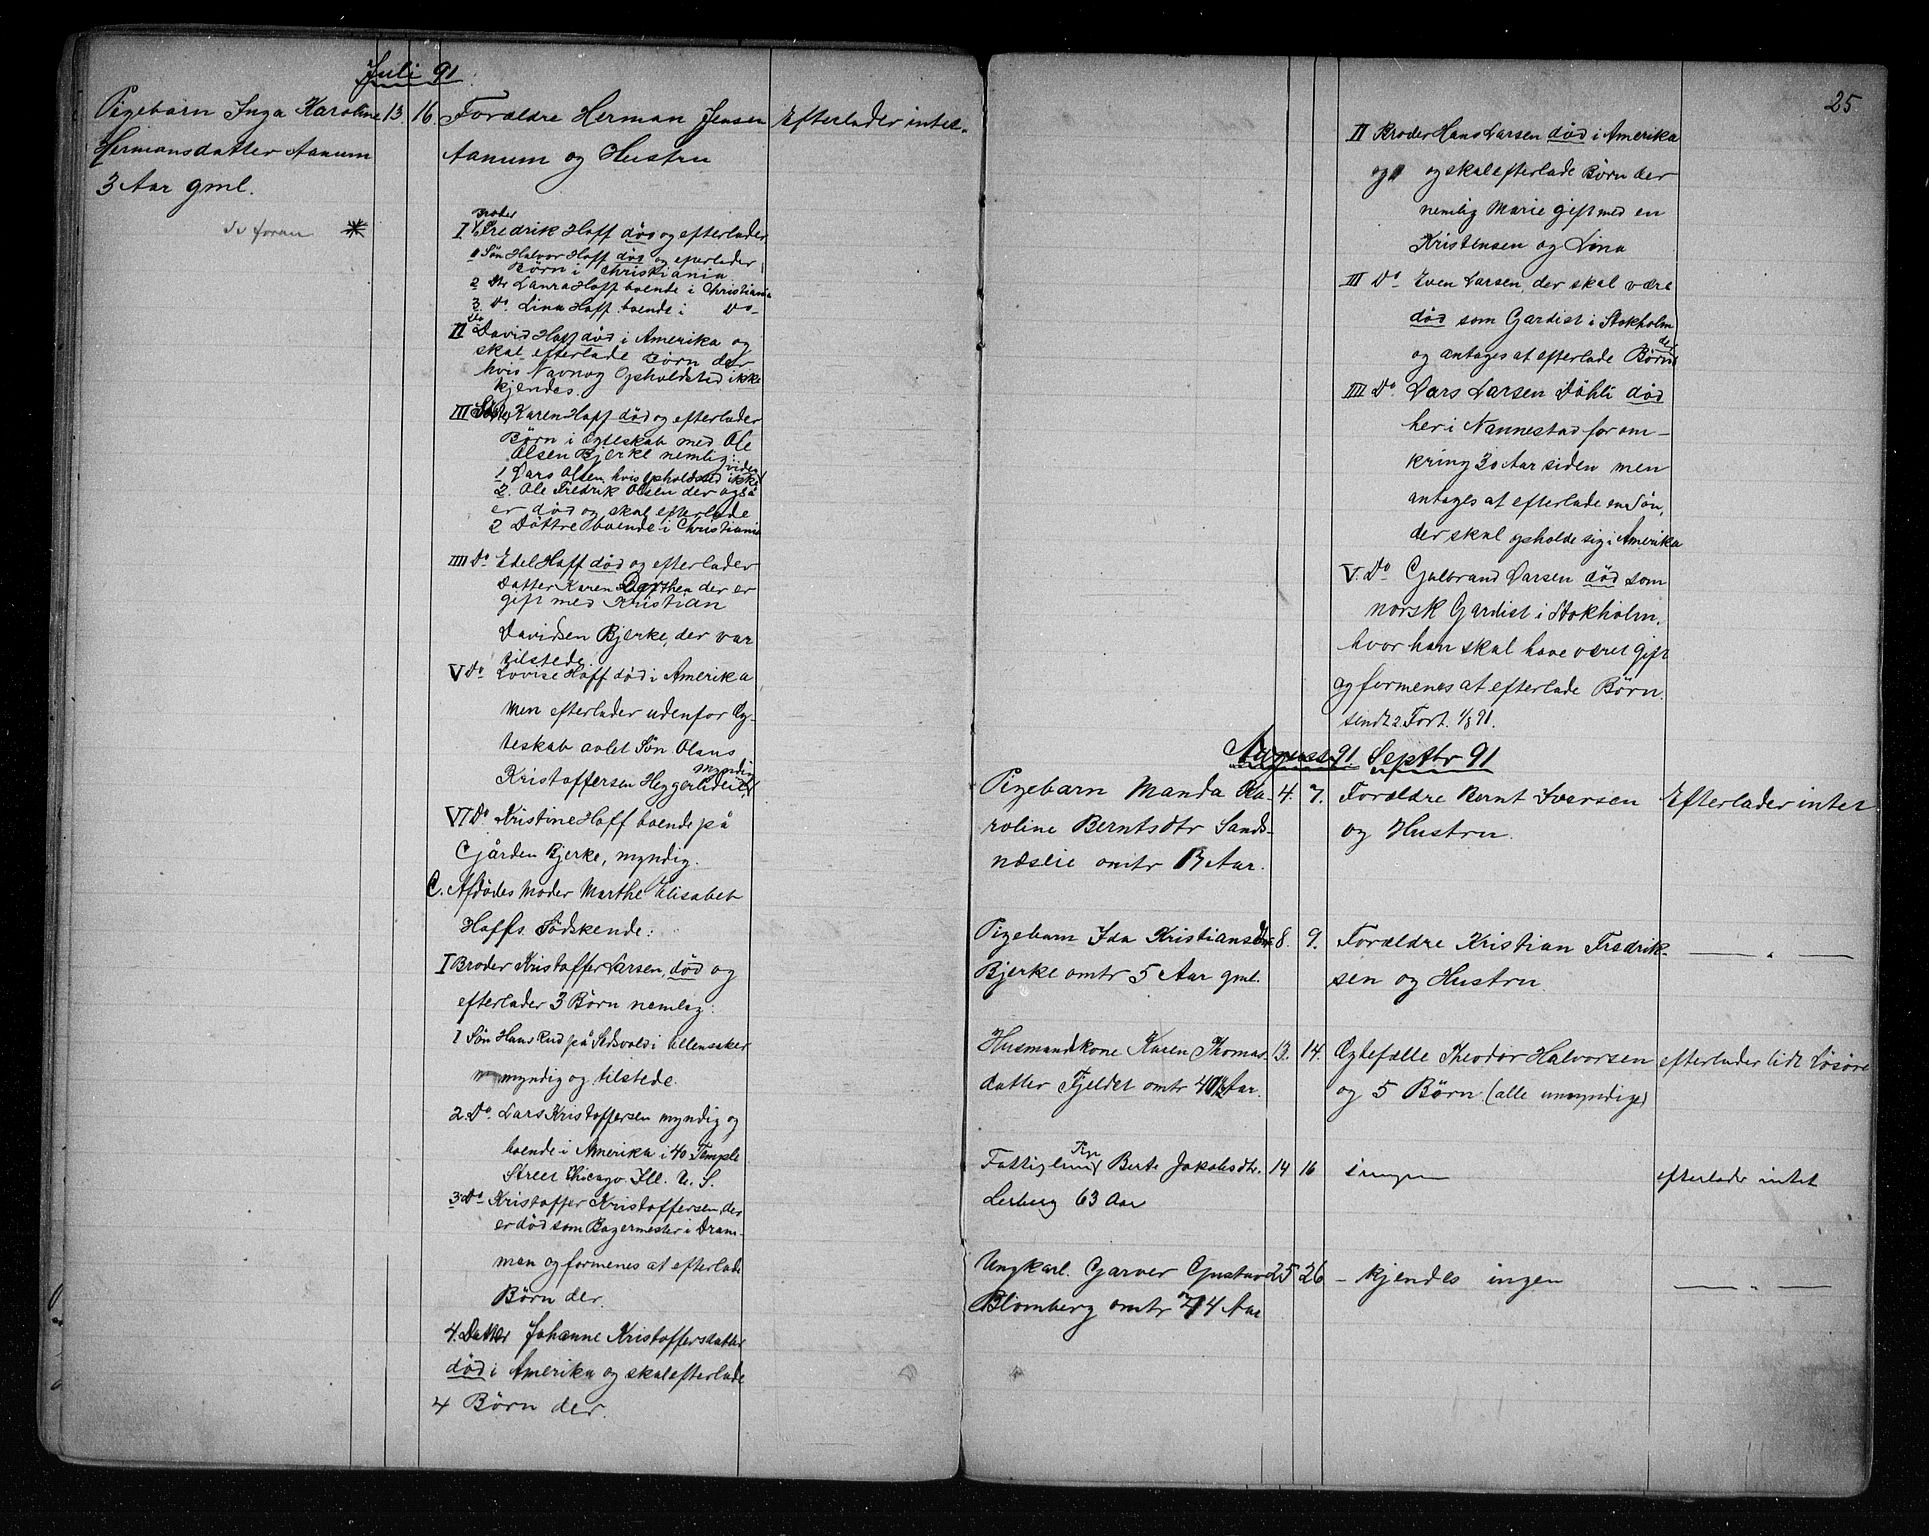 Juli 91.
Pigebarn Inga Karoline 13. 16. Forældre Herman Jensen Efterlader intet.
Hermansdatter Aanum Aanum og Hustru
3 Aar gml.
se foran *
Broder
I Fredrik Hoff død og efterlader
1 Søn Halvor Hoff død og efterlader
Børn i Christiania
2 Dtr Laura Hoff boende i Christiania
3. Do. Lina Hoff boende i Do-
Do
II David Hoff død i Amerika og
skal efterlade Børn der
hvis Navn og Opholdsted ikke
kjendes.
III Søster Karen Hoff død og efterlader
Børn i Egteskab med Ole
Olsen Bjerke nemlig:
1 Lars Olsen, hvis opholdsted ikke vides
2. Ole Fredrik Olsen der også
er død og skal efterlade
2 Døttre boende i Christiania
IIII Do Edel Hoff død og efterlader
Datter Karen Dorthea der er
gift med Kristian
Davidsen Bjerke, der var
tilstede.
V Do. Lovise Hoff død i Amerika
men efterlader udenfor Eg-
teskab avlet Søn Olaus
Kristoffersen Heggerlideiet, myndig
VI Do Kristine Hoff boende på
Gjården Bjerke, myndig.
C. Afdødes Moder Marthe Elisabet
Hoffs Sødskende:
I Broder Kristoffer Larsen, død og
efterlader 3 Børn nemlig:
1 Søn Hans Rud på i Ullensaker
myndig og tilstede.
2 Do. Lars Kristoffersen myndig og
boende i Amerika i 40 Temple
Street Chicago Ill. U. S.
3 Do Kristoffer Kristoffersen, der
er død som Bagermester i Dram-
men og formenes at efterlade
Børn der.
4. Datter Johanne Kristoffersdatter
død i Amerika og skal efterlade
4 Børn der.
25
II Broder Hans Larsen død i Amerika
og skal efterlade Børn der
nemlig Marie gift med en
Kristensen og Lina
III Do Even Larsen, der skal være
død som Gardist i Stokholm
og antages at efterlade Børn der
IIII Do. Lars Larsen Døhli død
her i Nannestad for om-
kring 30 Aar siden men
antages at efterlade en Søn,
der skal opholde sig i Amerika
V. Do Gulbrand Larsen død som
norsk Gardist i Stokholm,
hvor han skal have været gift
og formenes at efterlade Børn.
sendt 2. Fort. 1/8 91.
August 91. Septbr 91
Pigebarn Manda Ka- 4. 7. Forældre Bernt Iversen Efterlader intet
roline Berntsdtr Sands- og Hustru.
næseie omtr 13 Aar.
Pigebarn Ida Kristiansdtr 8. 9. Forældre Kristian Fredrik- — „ —
Bjerke omtr 5 Aar gml. sen og Hustru.
Husmandskone Karen Thomas- 13. 14. Egtefælle Theodor Halvorsen efterlader lidt Løsøre
datter Fjeldet omtr 40 Aar. og 5 Børn (alle umyndige)
Fattiglem Pige Berte Jakobsdtr. 14 16 ingen efterlader intet
Lerberg 63 Aar
Ungkarl. Garver Gustav 25 26 - kjendes ingen — „ —
Blomberg omtr 74 Aar